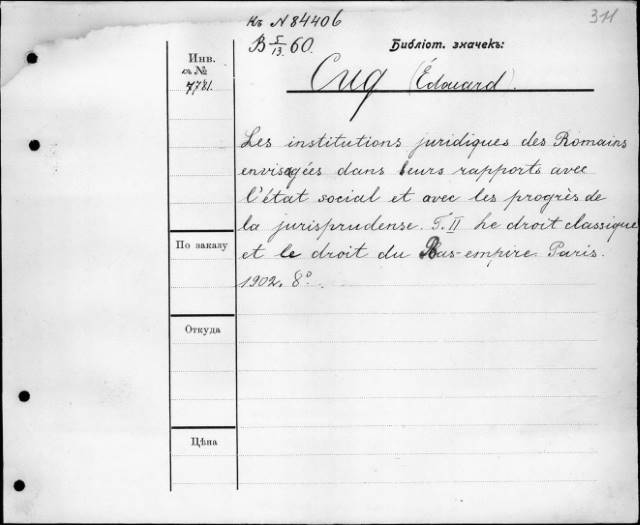 Къ N 84406
311
B 5/13. 60.
Библіот. значекъ:
Инв.
с. №
7781.
Cuq (Édouard).
Les institutions juridiques des Romains
envisagées dans leurs rapports avec
l'état social et avec les progrès de
la jurisprudense. T. II Le droit classique
et le droit du Bas-empire. Paris.
1902. 8°.
По заказу
Откуда
Цѣна